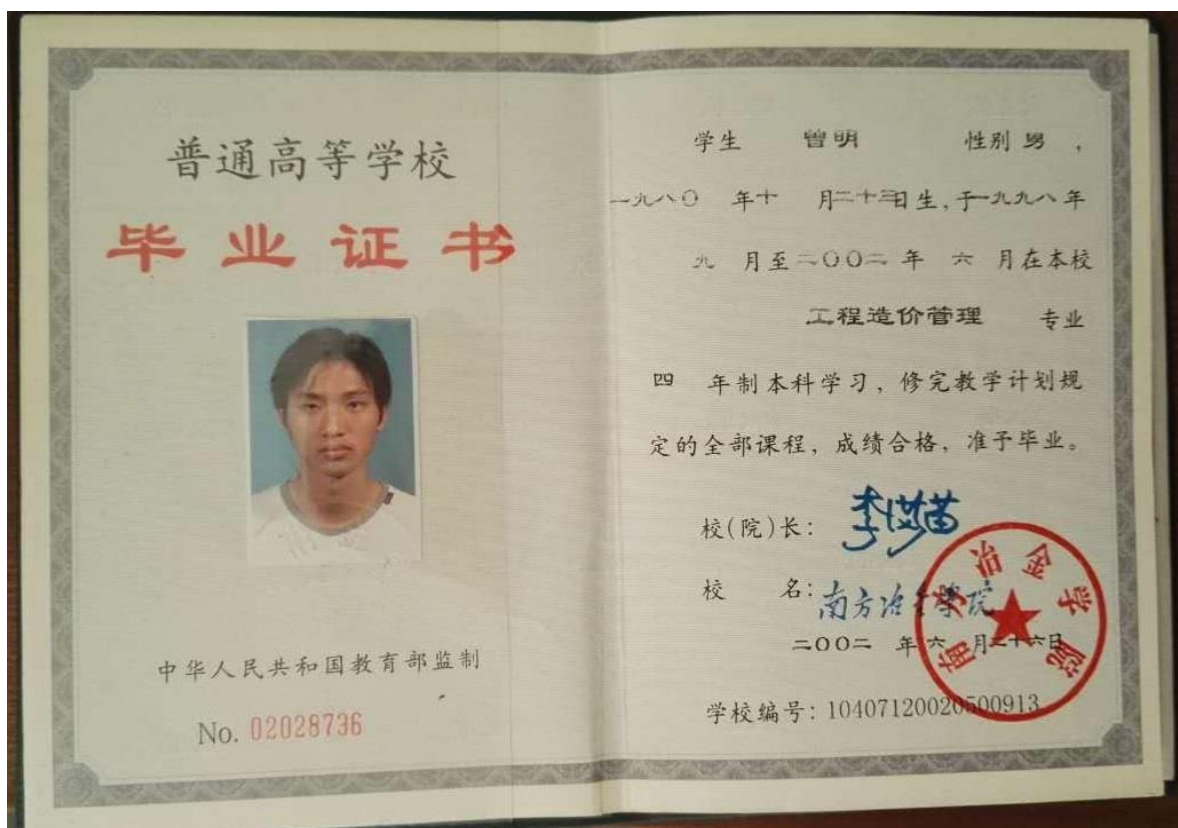 普通高等学校
毕业证书
中华人民共和国教育部监制
No. 02028736
学生 曾明 性别 男 ,
一九八〇 年十 月二十三日生,于一九九八年
九 月至二〇〇二 年 六 月在本校
工程造价管理 专业
四 年制本科学习，修完教学计划规
定的全部课程，成绩合格，准予毕业。
校(院)长：
校 名：南方冶金学院
二〇〇二 年 六 月二十六日
学校编号：10407120020500913
南方冶金学院